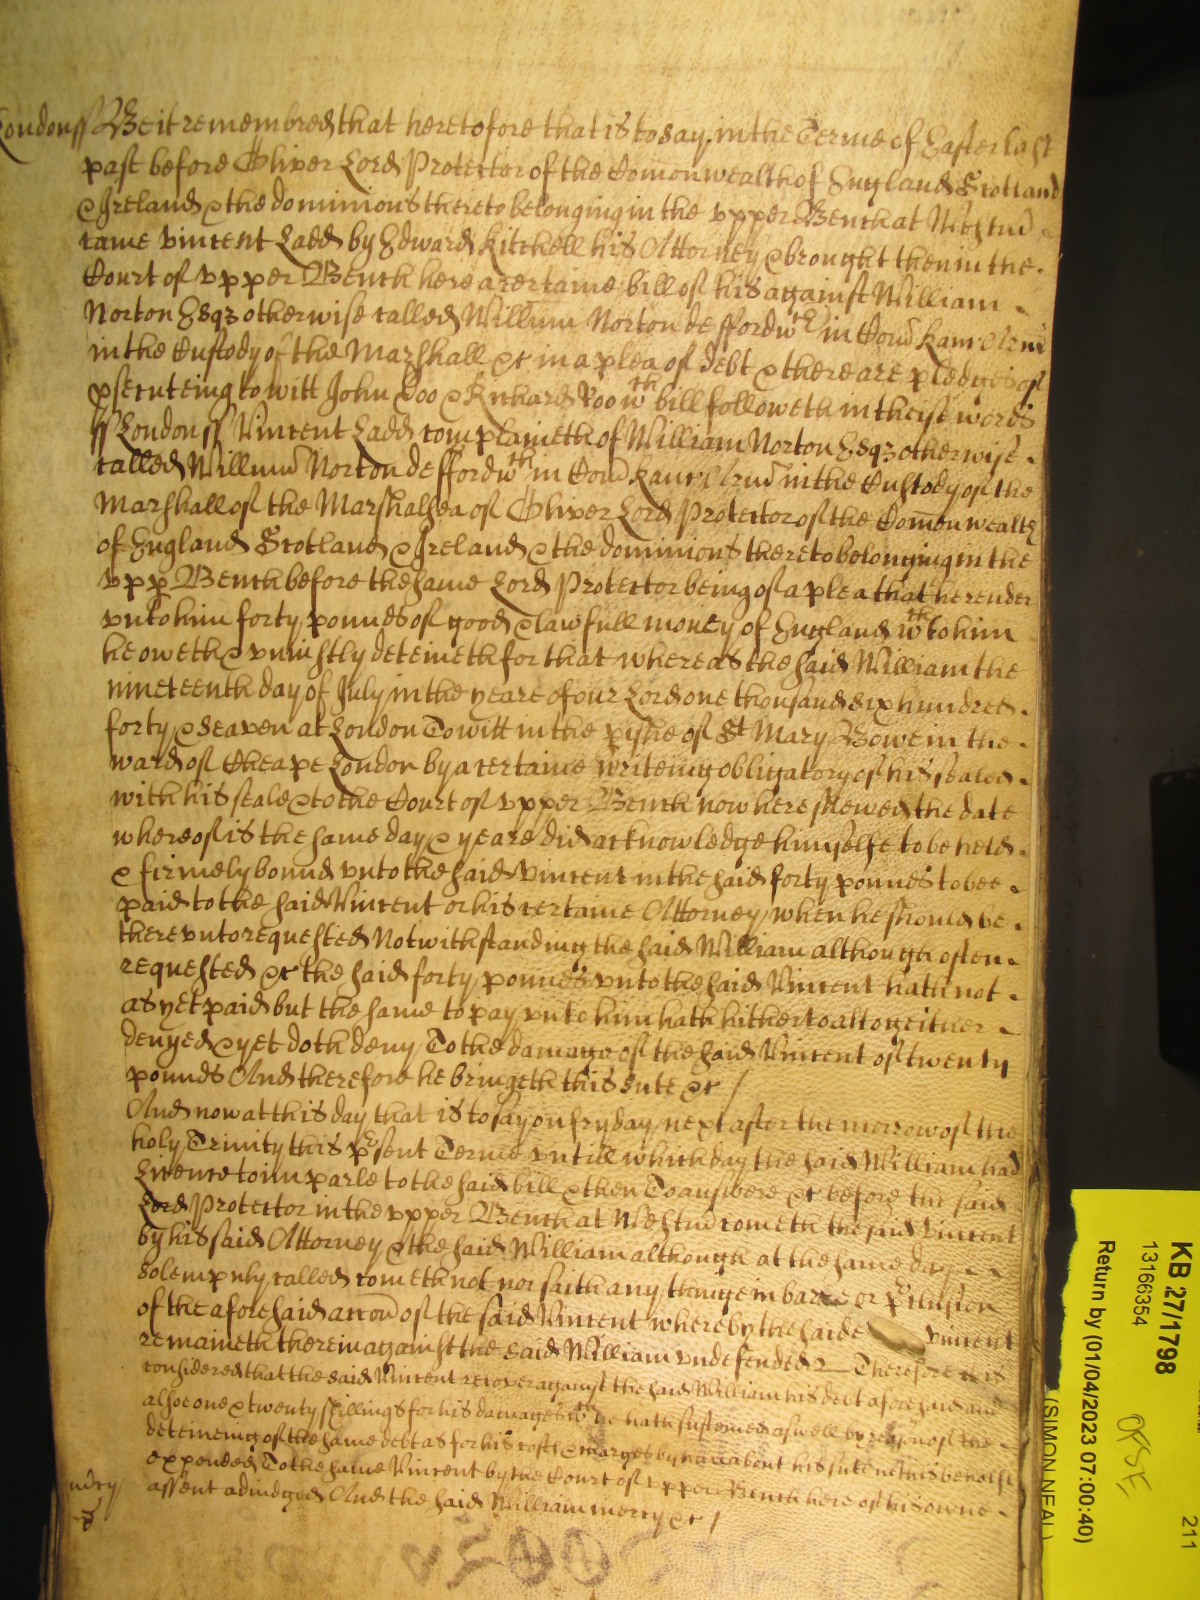 Londonss Be it remembred that heretofore that is to say in the Terme of Easter last
past before Oliver Lord Protector of the Comonwealth of England Scotland
& Ireland & the dominions thereto belonging in the vpper Bench at Westm
came Vincent Ladd by Edward Kitchell his Attorney & brought then in the
Court of vpper Bench here a certaine bill of his against William
Norton Esqz otherwise called Willum Norton de ffordwch in Com Kanc Arm
in the Custody of the Marshall &c in a plea of debt & there are pledges of
psecuteing to witt John Doo & Richard Roo wth bill followeth in theise words
ss London ss Vincent Ladd complaineth of William Norton Esqz otherwise
called Willum Norton de ffordwch in Com Kanc Arm in the Custody of the
Marshall of the Marshalsea of Oliver Lord Protector of the Comonwealth
of England Scotland & Ireland & the dominions thereto belonging in the
vpp Bench before the same Lord Protector being of a plea that he render
vnto him forty pounds of good & lawfull money of England wth to him
he oweth & vniustly deteineth for that whereas the said William the
nineteenth day of July in the yeare of our Lord one thousand six hundred
forty & seaven at London To witt in the pishe of St Mary Bowe in the
ward of Cheape London by a certaine writeing obligatory of his sealed
with his seale & to the Court of vpper Bench now here shewed the date
whereof is the same day & yeare did acknowledge himselfe to be held
& firmely bound vnto the said Vincent in the said forty pounds to bee
paid to the said Vincent or his certaine Attorney when he should be
therevnto requested Notwithstanding the said William although often
requested &c the said forty pounds vnto the said Vincent hath not
as yet paid but the same to pay vnto him hath hitherto altogeither
denyed & yet doth deny To the damage of the said Vincent of twenty
pounds And therefore he bringeth this sute &c /
And now at this day that is to say on fryday next after the morrow of the
holy Trinity this psent Terme vntill which day the said William had
Licence to imparle to the said bill & then To answere &c before the said
Lord Protector in the vpper Bench at Westm cometh the said Vincent
by his said Attorney & the said William although at the same day
solempnly called cometh not nor saith any thinge in barre or pclusion
of the aforesaid accon of the said Vincent whereby the saide Vincent
remaineth therein against the said William vndefended Therefore it is
considered that the said Vincent recover against the said William his debt aforesaid and
alsoe one & twenty shillings for his damages wch he hath susteined aswell by reason of the
deteineing of the same debt as for his costs & charges by him about his sute in this behalfe
expended To the same Vincent by the Court of vpper Bench here of his owne
assent adiudged And the said William in mercy &c /
mercy
KB 27/1798
13166354
Return by (01/04/2023 07:00:40)
(SIMON NEAL)
211